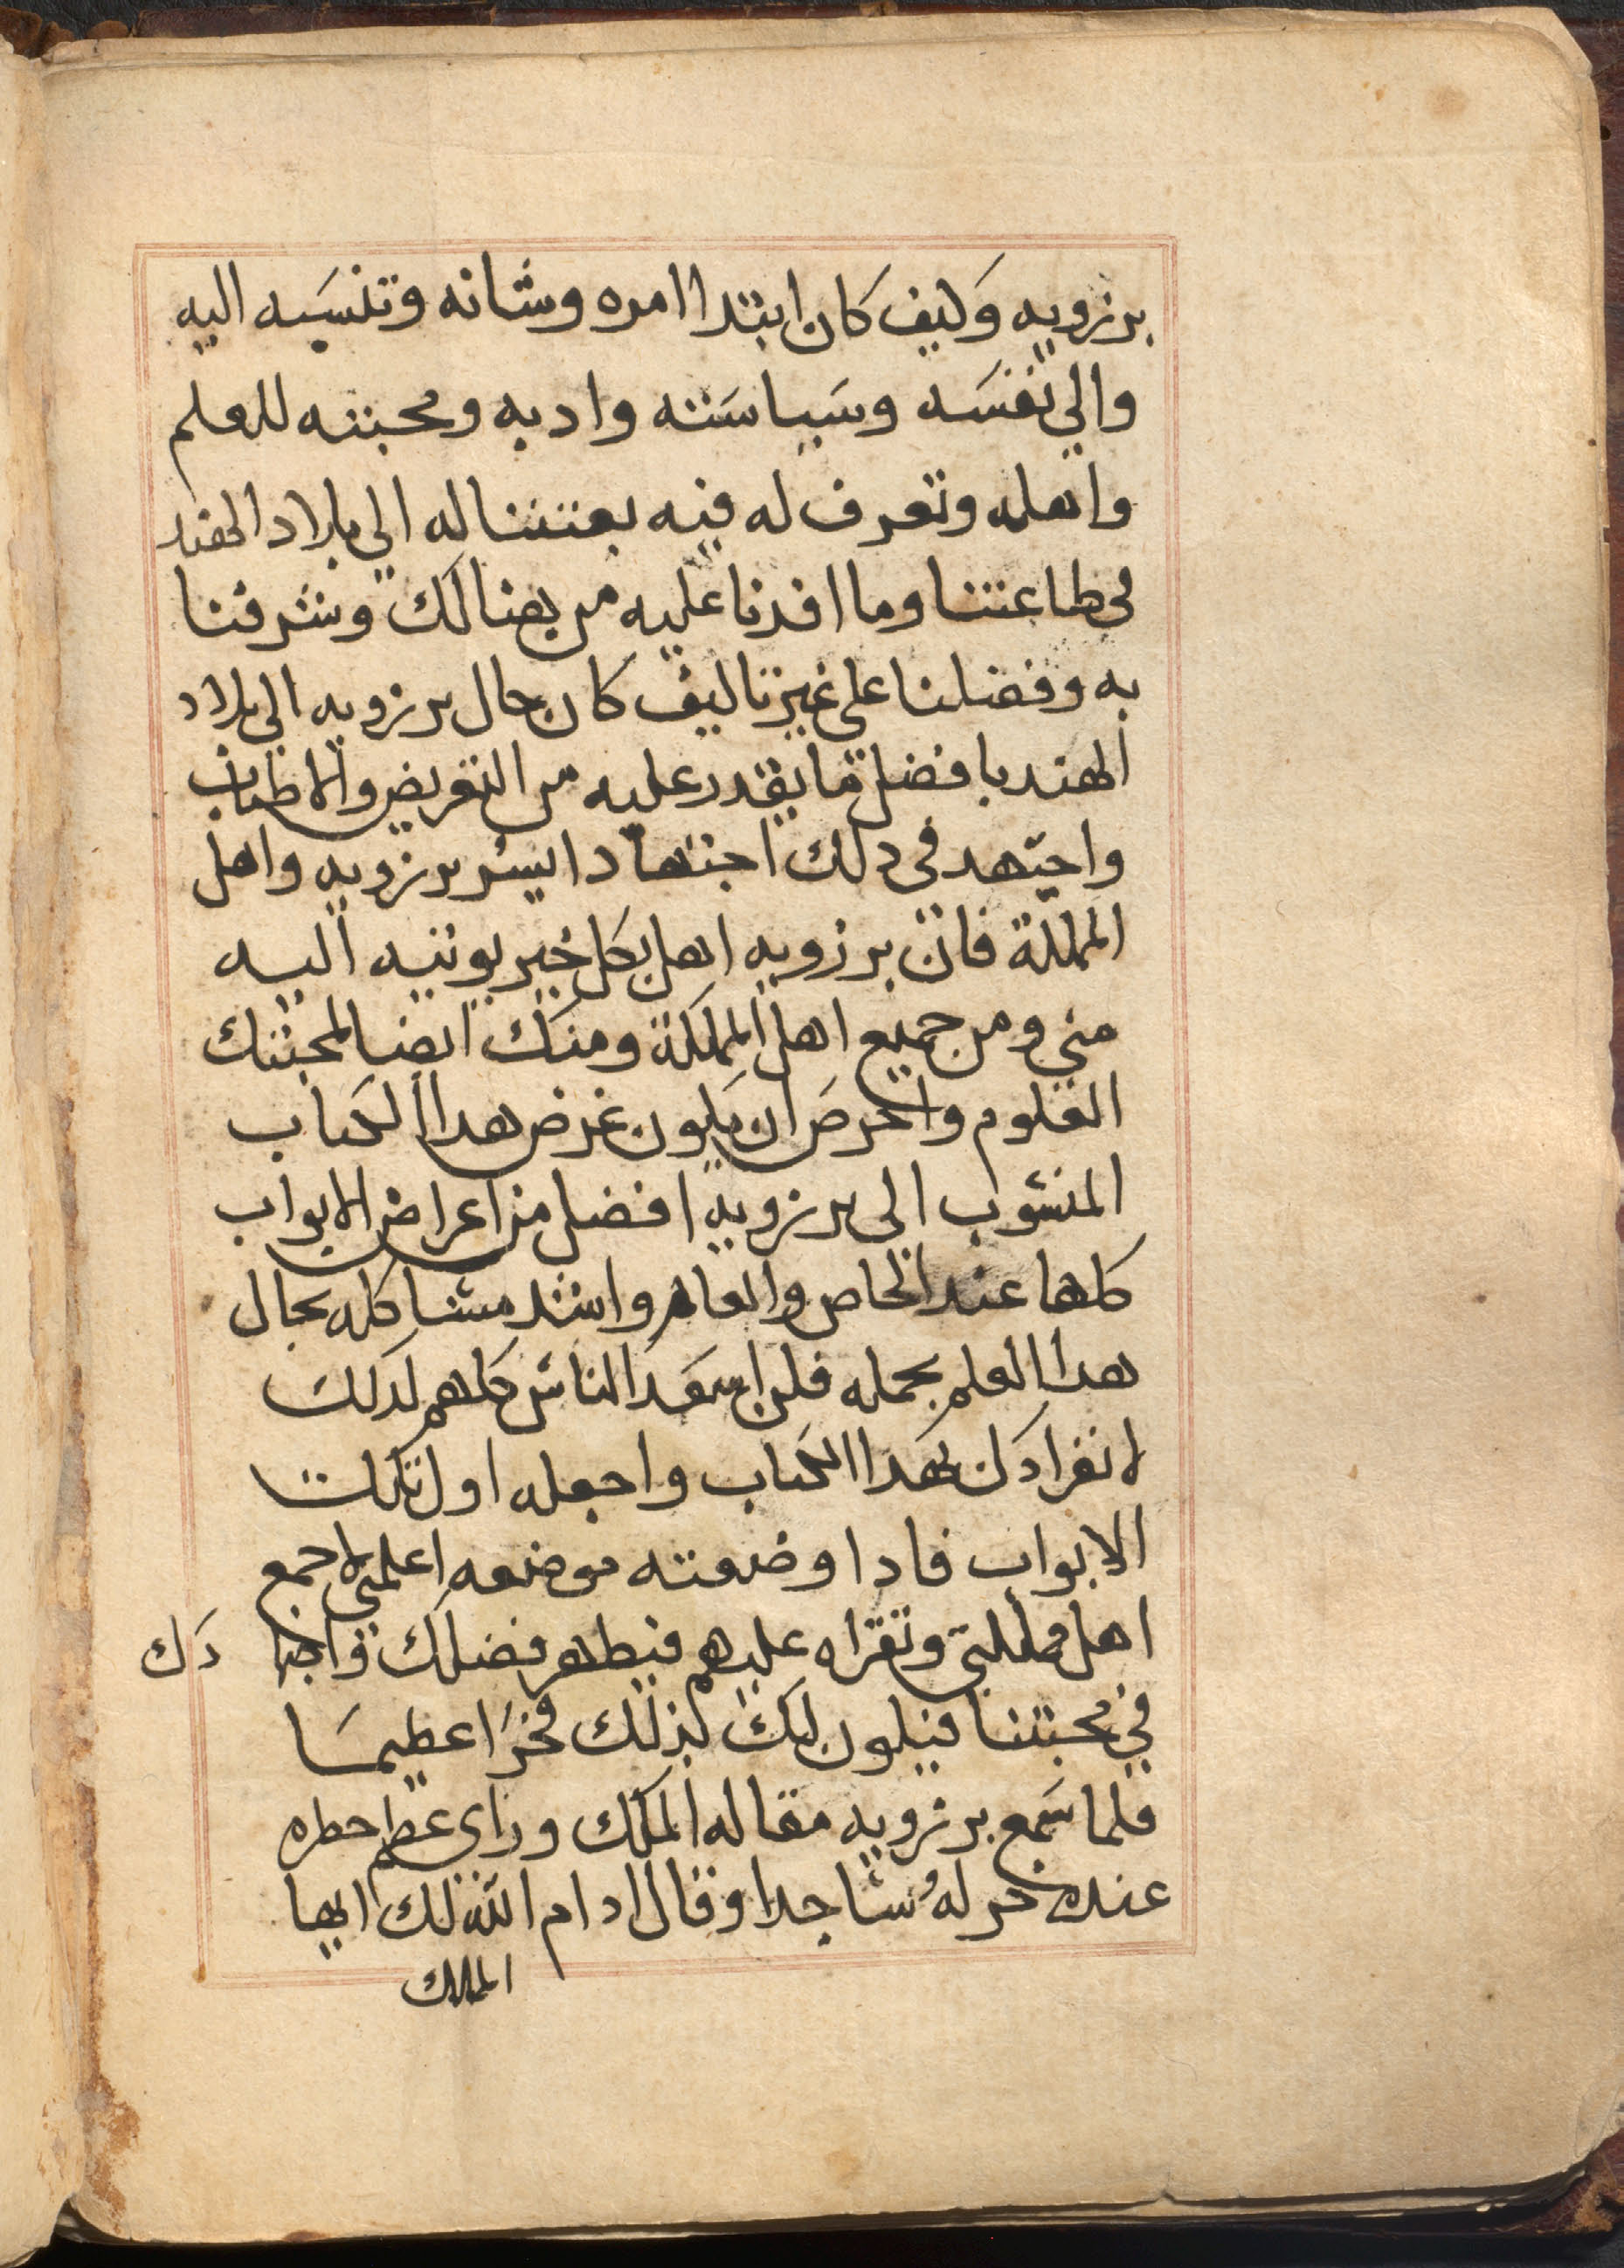 برزويه وكيف كان ابتدا امره وشانه وتنسبه اليه
والي نفسه وسياسته وادبه ومحبته للعلم
واهله وتعرف له فيه بعثتنا له الي بلاد الهند
في طاعتنا وما افدنا عليه من هنالك وشرفنا
به وفضلنا علي غيرنا كيف كان حال برزويه الي بلاد
الهند بافضل ما يقدر عليه من التقريض والاطناب
واجتهد في دلك اجتهادا يسر برزويه واهل
المملكة فان برزويه اهل لكل خير يوتيه اليه
مني ومن جميع اهل المملكة ومنك ايضا لمحبتك
العلوم واحرص ان يكون غرض هدا الكتاب
المنسوب الي برزويه افضل من اغراض الابواب
كلها عند الخاص والعام واشد مشاكله بحال
هدا العلم بجمله فلن اسعد الناس كلهم لدلك
لانفرادك بهدا الكتاب واجعله اول تلك
الابواب فادا وضعته موضعه اعلمني لاجمع
اهل مملكتي وتقراه عليهم فيطهر فضلك واجتها دك
في محبتنا فيكون لك بذلك فخرا عظيما
فلما سمع برزويه مقاله الملك وراي عظم خطره
عنده خر له ساجدا وقال ادام الله لك ايها
الملك